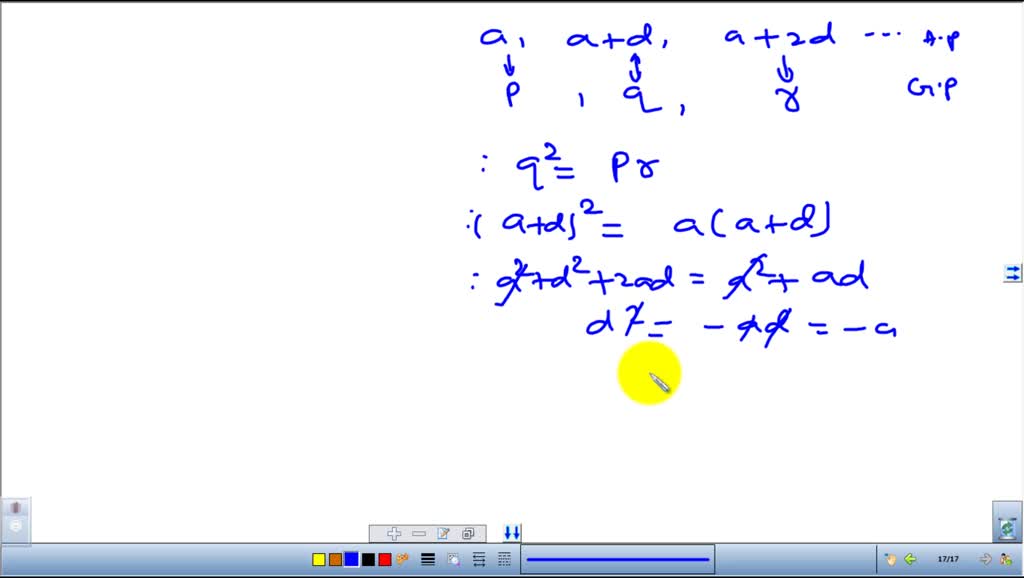 a, a+d, a+2d ... A.P
P, q, r G.P
: q² = Pr
:( a+d)² = a(a+d)
: a²+d²+2ad = a²+ ad
d² = -ad = -a
17/17